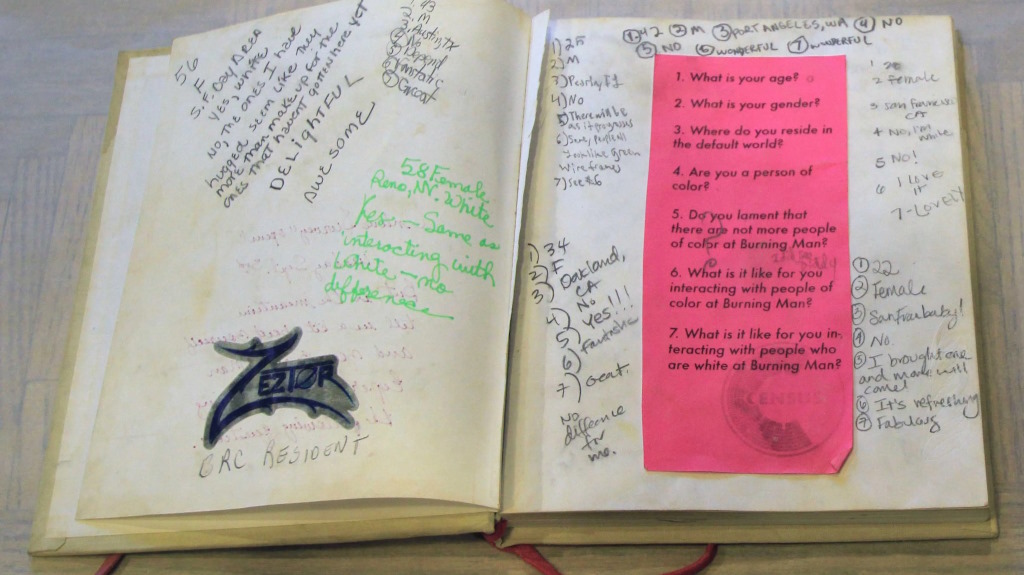 56
F
S.F. Bay AREA
Yes, white
No, the ones I have
hugged seem like they
more than make up for the
ones that haven't gotten here yet
DELIGHTFUL
AWESOME
43
M
Austin, TX
No
Fantastic
Great
58 Female
Reno, NV. White
Yes — Same as
interacting with
White — no
difference
ZEZTOR
BRC RESIDENT
① 42 ② M ③ PORT ANGELES, WA ④ NO
⑤ NO ⑥ WONDERFUL ⑦ WONDERFUL
1) 2F
2) M
3) Pearly, FL
4) No
5) There will be
as it progresses
6) Same,
Green
Wireframes
7) See #6
1) 34
2) F
3) Oakland,
CA
4) No
5) Yes!!!
6) Fantastic
7) Great.
No
difference
for
me.
1. What is your age?
2. What is your gender?
3. Where do you reside in
the default world?
4. Are you a person of
color?
5. Do you lament that
there are not more people
of color at Burning Man?
6. What is it like for you
interacting with people of
color at Burning Man?
7. What is it like for you in-
teracting with people who
are white at Burning Man?
CENSUS
1
2 Female
3 San Francisco
CA
4 No, I'm
White
5 No!
6 I Love
it
7 - Lovely
① 22
② Female
③ San Fran baby!
④ No.
⑤ I brought one
and more will
come!
⑥ It's refreshing
⑦ Fabulous